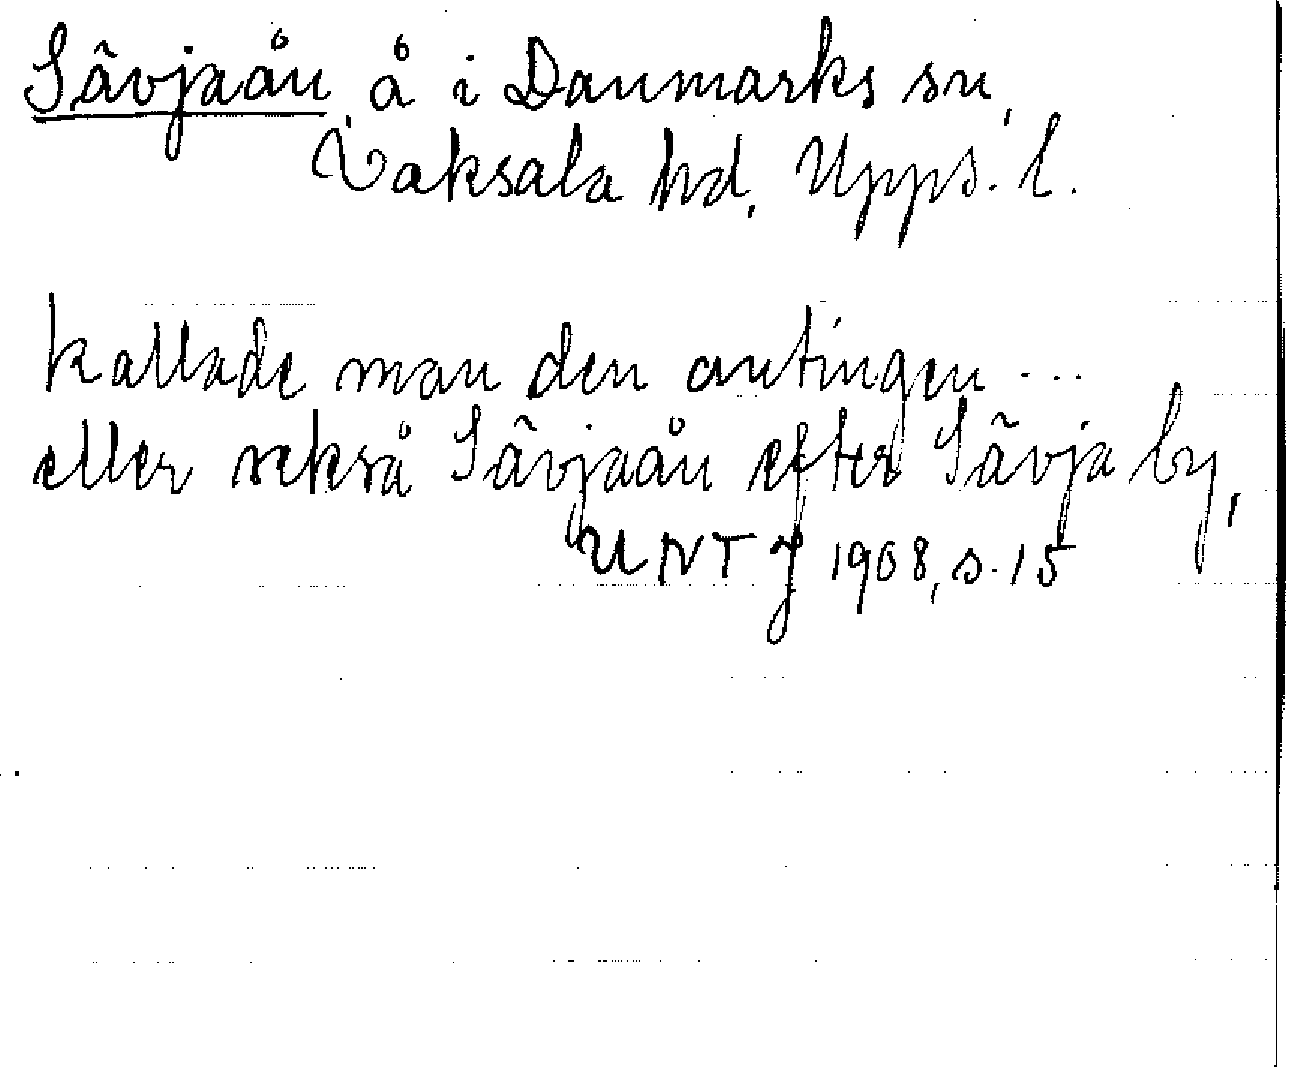 Sävjaån å i Danmarks sn,
Vaksala hd, Upps. l.
kallade man den antingen ...
eller också Sävjaån efter Sävja by,
UNT J 1908, s. 15